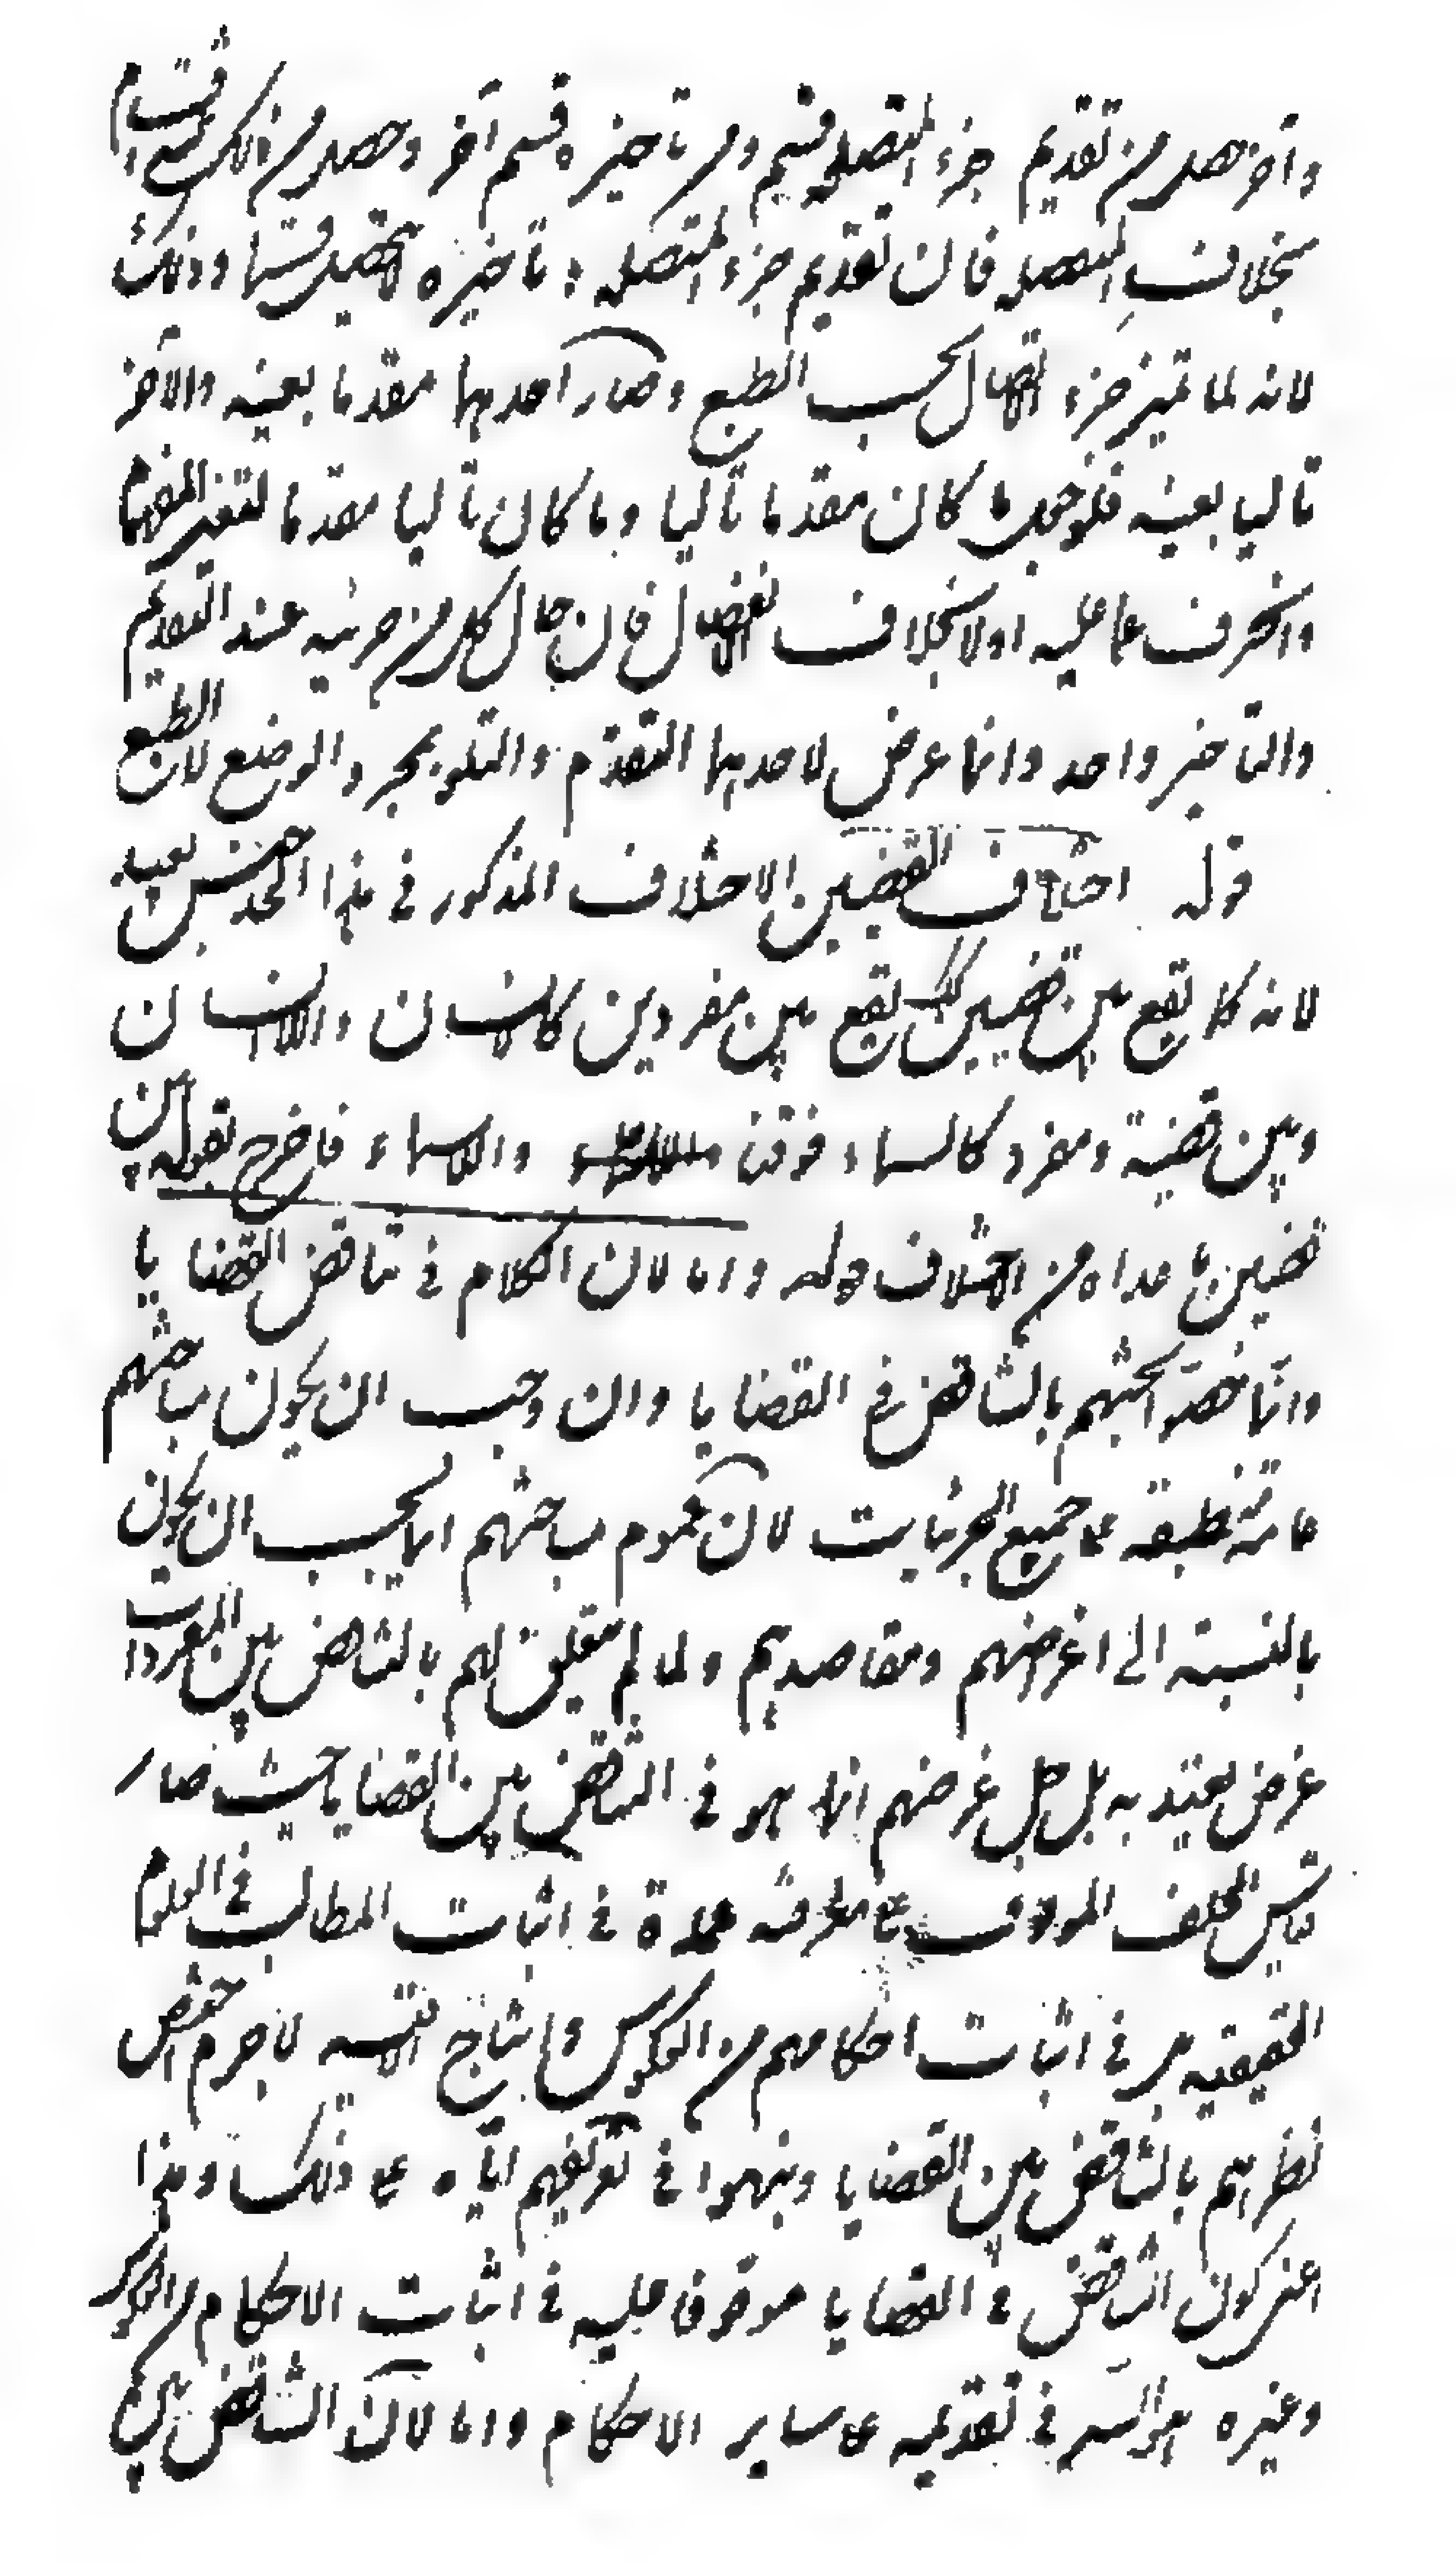 وآخر حصل من تقديم جزء المتصلة قسم ومن تأخيره قسم آخر وحصل من ذلك تسع اقسام
بخلاف المنفصلة فان تقديم جزء المنفصلة وتأخيره لا يحصل قسما وذلك
لانه لما تميز جزء الاتصال بحسب الطبع وصار احدهما مقدما بعينه والآخر
تاليا بعينه فلو جعل ما كان مقدما تاليا وما كان تاليا مقدما لتغير المفهوم
وانحرف عما عليه اولا بخلاف الانفصال فان حال كل من جزئيه عند التقديم
والتأخير واحد وانما عرض لاحدهما التقدم والتلو بمجرد الوضع لا الطبع
قوله اختلاف القضيتين الاختلاف المذكور في هذا الحد جنس بعيد
لانه كما تقع بين قضيتين كك تقع بين مفردين كالانسان واللاانسان
وبين قضية ومفرد كالسماء فوقنا واللاسماء فاخرج بقوله بين
قضيتين ما عداه من الاختلاف قوله واما لان الكلام في تناقض القضايا
وانما خصوا بحثهم بالتناقض في القضايا وان وجب ان يكون مباحثهم
عامة منطبقة على جميع الجزئيات لان عموم مباحثهم انما يجب ان يكون
بالنسبة الى اغراضهم ومقاصدهم ولما لم يتعلق لهم بالتناقض بين المفردات
غرض يعتد به بل جل غرضهم انما هو في التناقض بين القضايا حيث صار
قياس الخلف الموقوف على معرفته عمدة في اثبات المطالب في العلوم
الحقيقية بل في اثبات احكامهم من العكوس وانتاج الاقيسة لا جرم اختص
نظرهم بالتناقض بين القضايا ونبهوا في تعريفهم اياه على ذلك وهذا
اعني كون التناقض في القضايا موقوفا عليه في اثبات الاحكام من العكوس
وغيره هو السر في تقديمه على ساير الاحكام واما لان التناقض بين